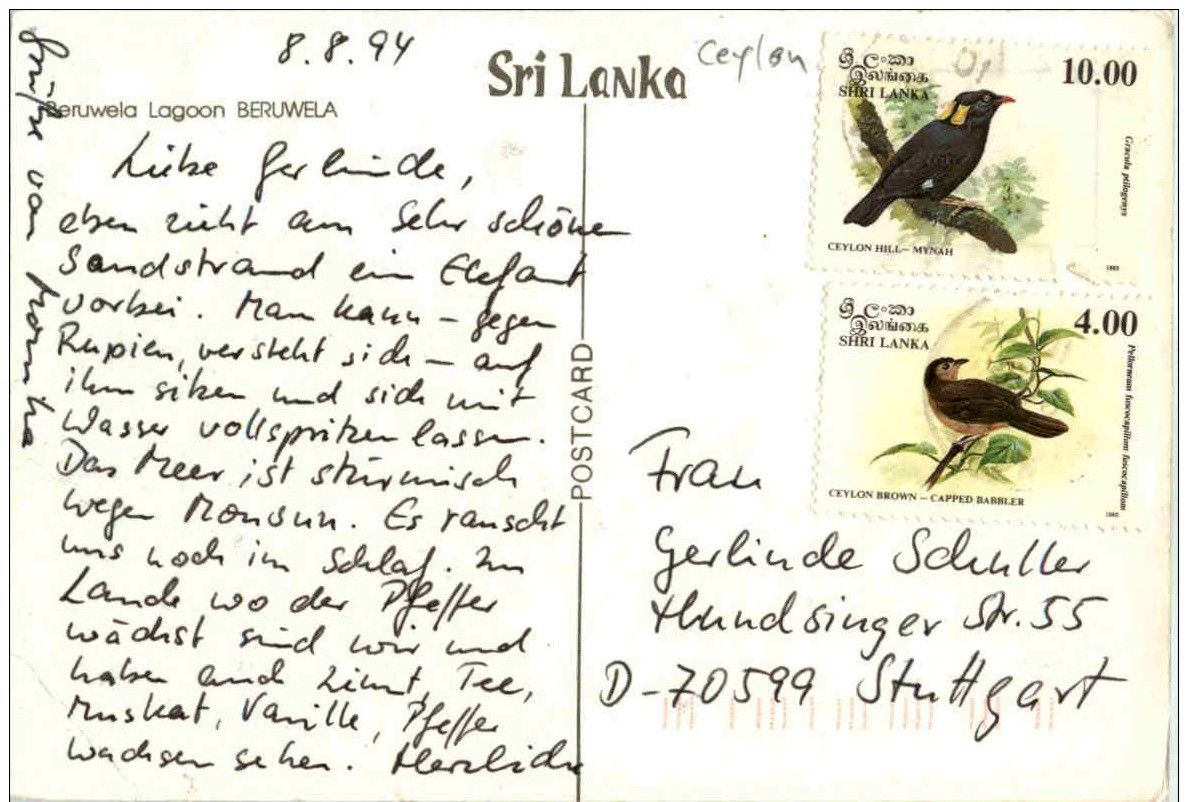 8.8.94
Beruwela Lagoon BERUWELA
Liebe Gerlinde,
eben zieht am sehr schönen
Sandstrand ein Elefant
vorbei. Man kann – gegen
Rupien, versteht sich – auf
ihm sitzen und sich mit
Wasser vollspritzen lassen.
Das Meer ist stürmisch
wegen Monsun. Es rauscht
uns noch im Schlaf. Im
Lande wo der Pfeffer
wächst sind wir und
haben auch Zimt, Tee,
Muskat, Vanille, Pfeffer
wachsen sehen. Herzliche
Grüße von
Sri Lanka
POSTCARD
Ceylon
ශ්‍රී ලංකා
இலங்கை
SHRI LANKA
10.00
Gracula ptilogenys
CEYLON HILL – MYNAH
ශ්‍රී ලංකා
இலங்கை
SHRI LANKA
4.00
Pellorneum fuscocapillum fuscocapillum
CEYLON BROWN – CAPPED BABBLER
Frau
Gerlinde Schuller
Hundsinger Str. 55
D-70599 Stuttgart